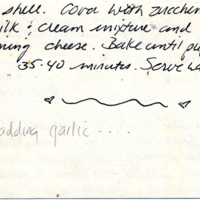 shell. Cover with zucchin
ilk & cream mixture and
ning cheese. Bake until pu
35-40 minutes. Serve wa
adding garlic ....